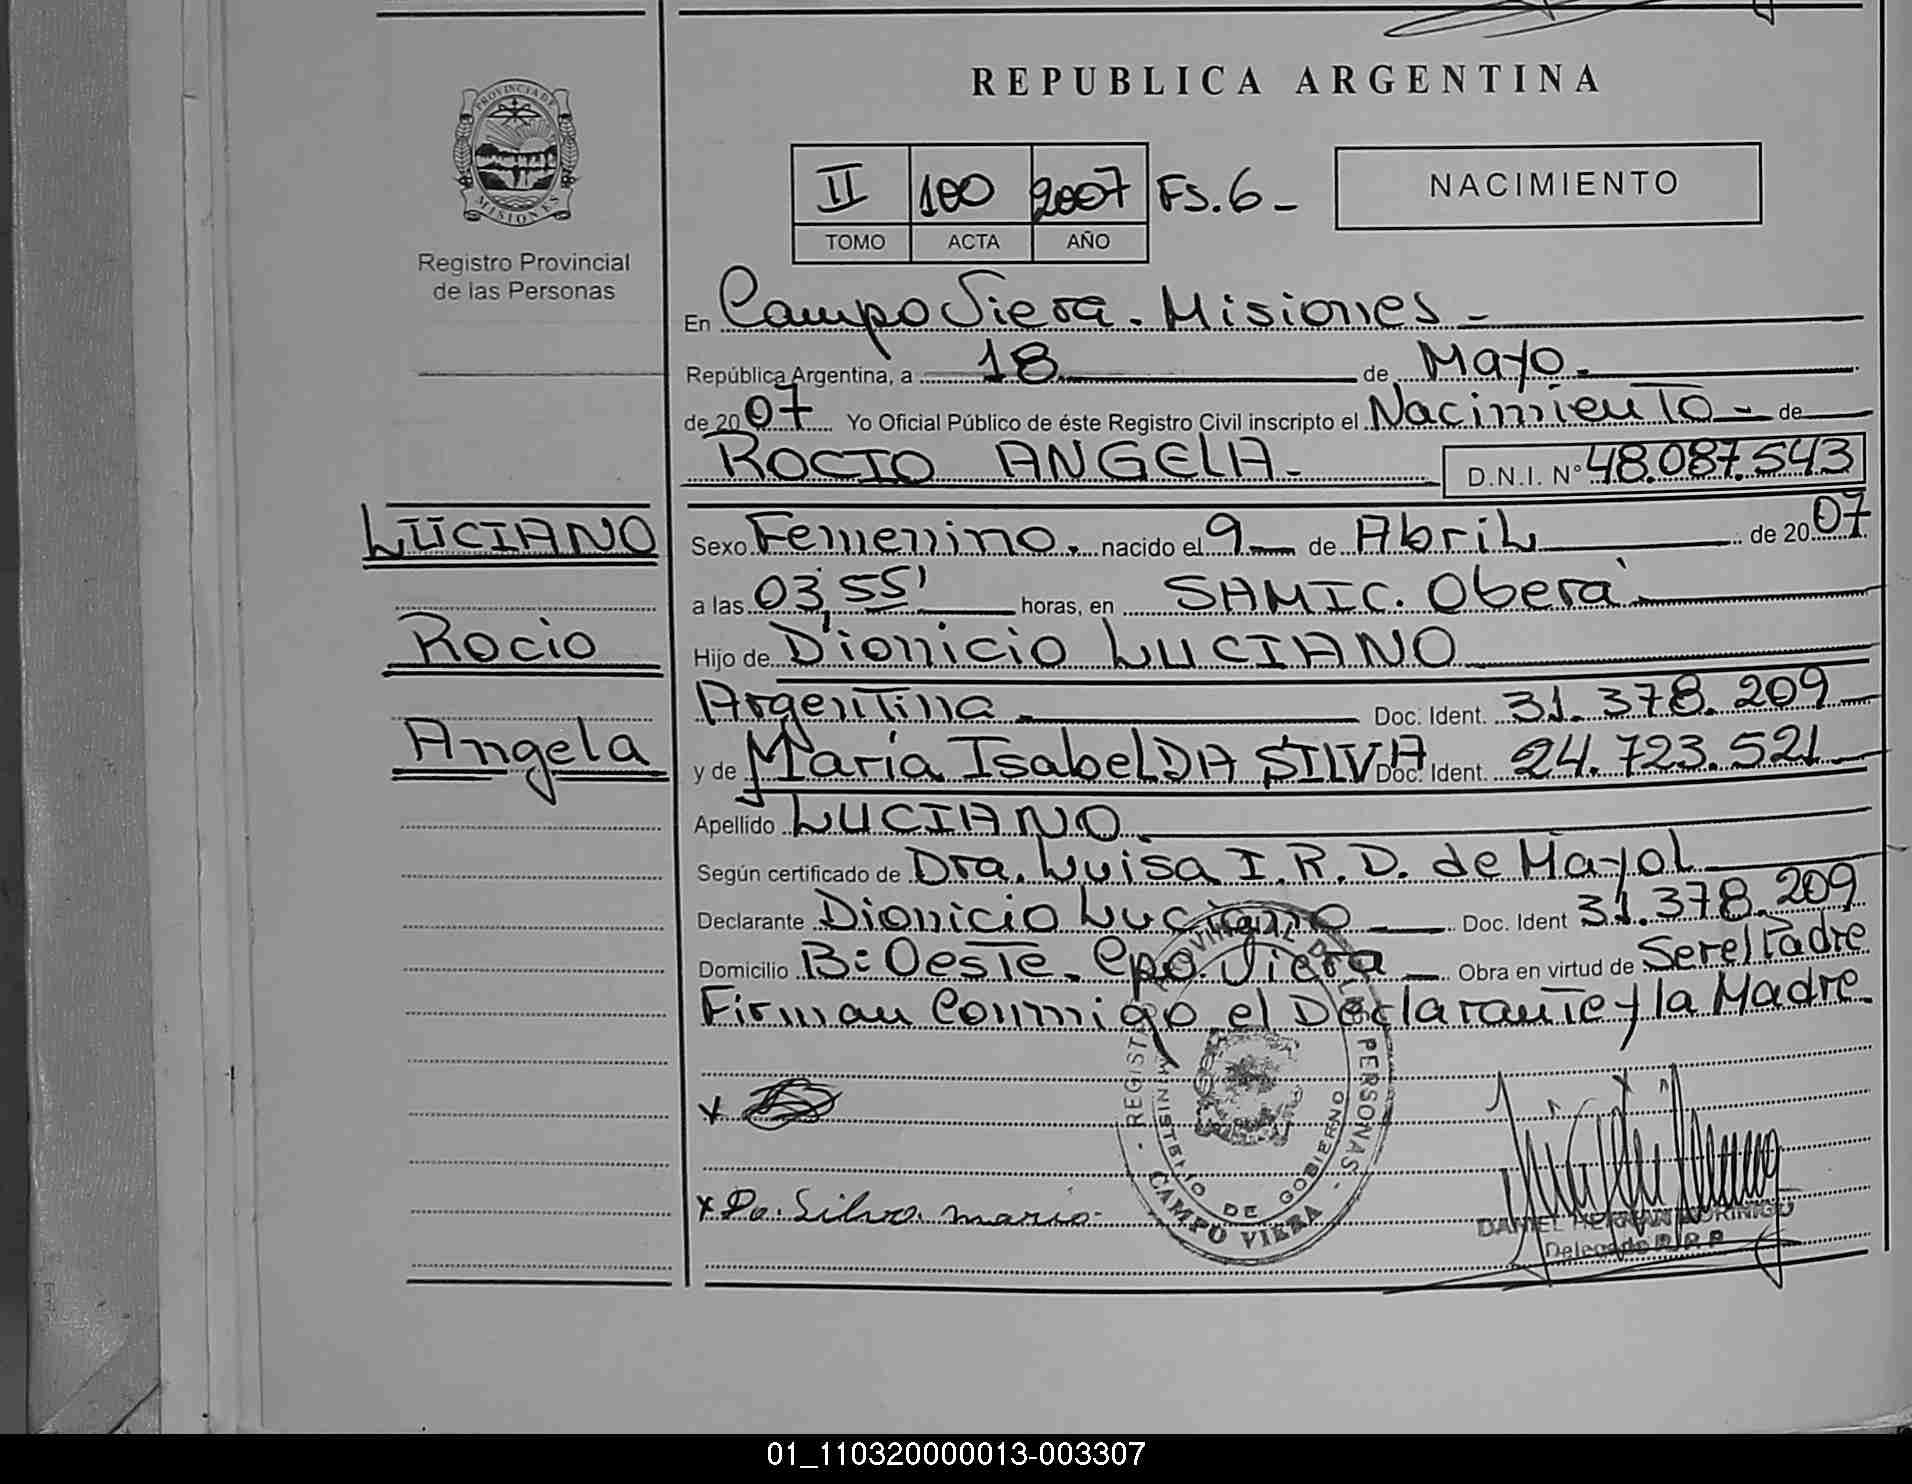 REPUBLICA ARGENTINA
PROVINCIA DE
MISIONES
Registro Provincial
de las Personas
II 100 2007 FS.6-
TOMO ACTA AÑO
NACIMIENTO
En Campo Viera. Misiones -
República Argentina, a 18 de Mayo.
de 2007 Yo Oficial Público de éste Registro Civil inscripto el Nacimiento - de
ROCIO ANGELA- D.N.I. N° 48.087.543
LUCIANO
Rocio
Angela
Sexo Femenino. nacido el 9 de Abril de 2007
a las 03,55' horas, en SAMIC. Oberá
Hijo de Dionicio LUCIANO
Argentina Doc. Ident. 31.378.209
y de María Isabel DA SILVA Doc. Ident. 24.723.521
Apellido LUCIANO
Según certificado de Dra. Luisa I.R.D. de Mayol
Declarante Dionicio Luciano Doc. Ident 31.378.209
Domicilio B: Oeste. Cpo. Viera Obra en virtud de Ser el Padre
Firman Conmigo el Declarante y la Madre.
x
x Da. Silva. maria.
- REGISTRO PROVINCIAL DE LAS PERSONAS -
MINISTERIO DE GOBIERNO
CAMPO VIERA
DANIEL HERNAN MORINIGO
Delegado R.R.P
01_110320000013-003307